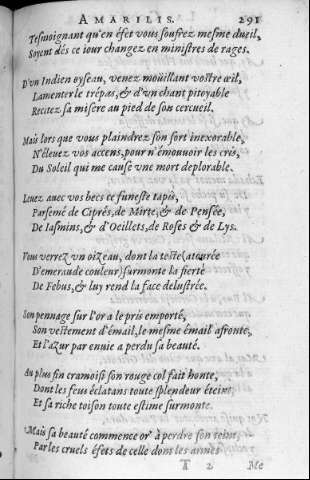 AMARILIS. 291
Tesmoignant qu'en éfet vous soufrez mesme dueil,
Soyent dés ce iour changez en ministres de rages.
D'vn Indien oyseau, venez moüillant vostre œil,
Lamenter le trépas, & d'vn chant pitoyable
Recitez sa misere au pied de son cercueil.
Mais lors que vous plaindrez son sort inexorable,
N'éleuez vos accens, pour n'émouuoir les cris,
Du Soleil qui me cause vne mort deplorable.
Leuez auec vos becs ce funeste tapis,
Parsemé de Ciprés, de Mirte, & de Pensée,
De Iasmins, & d'Oeillets, de Roses & de Lys.
Vous verrez vn oizeau, dont la teste (atourée
D'emeraude couleur) surmonte la fierté
De Febus, & luy rend la face delustrée.
Son pennage sur l'or a le pris emporté,
Son vestement d'émail, le mesme émail afronte,
Et l'azur par enuie a perdu sa beauté.
Au plus fin cramoisi son rouge col fait honte,
Dont les feus éclatans toute splendeur éteint,
Et sa riche toison toute estime surmonte.
Mais sa beauté commence or' à perdre son teint,
Par les cruels éfets de celle dont les armes
T 2 Me